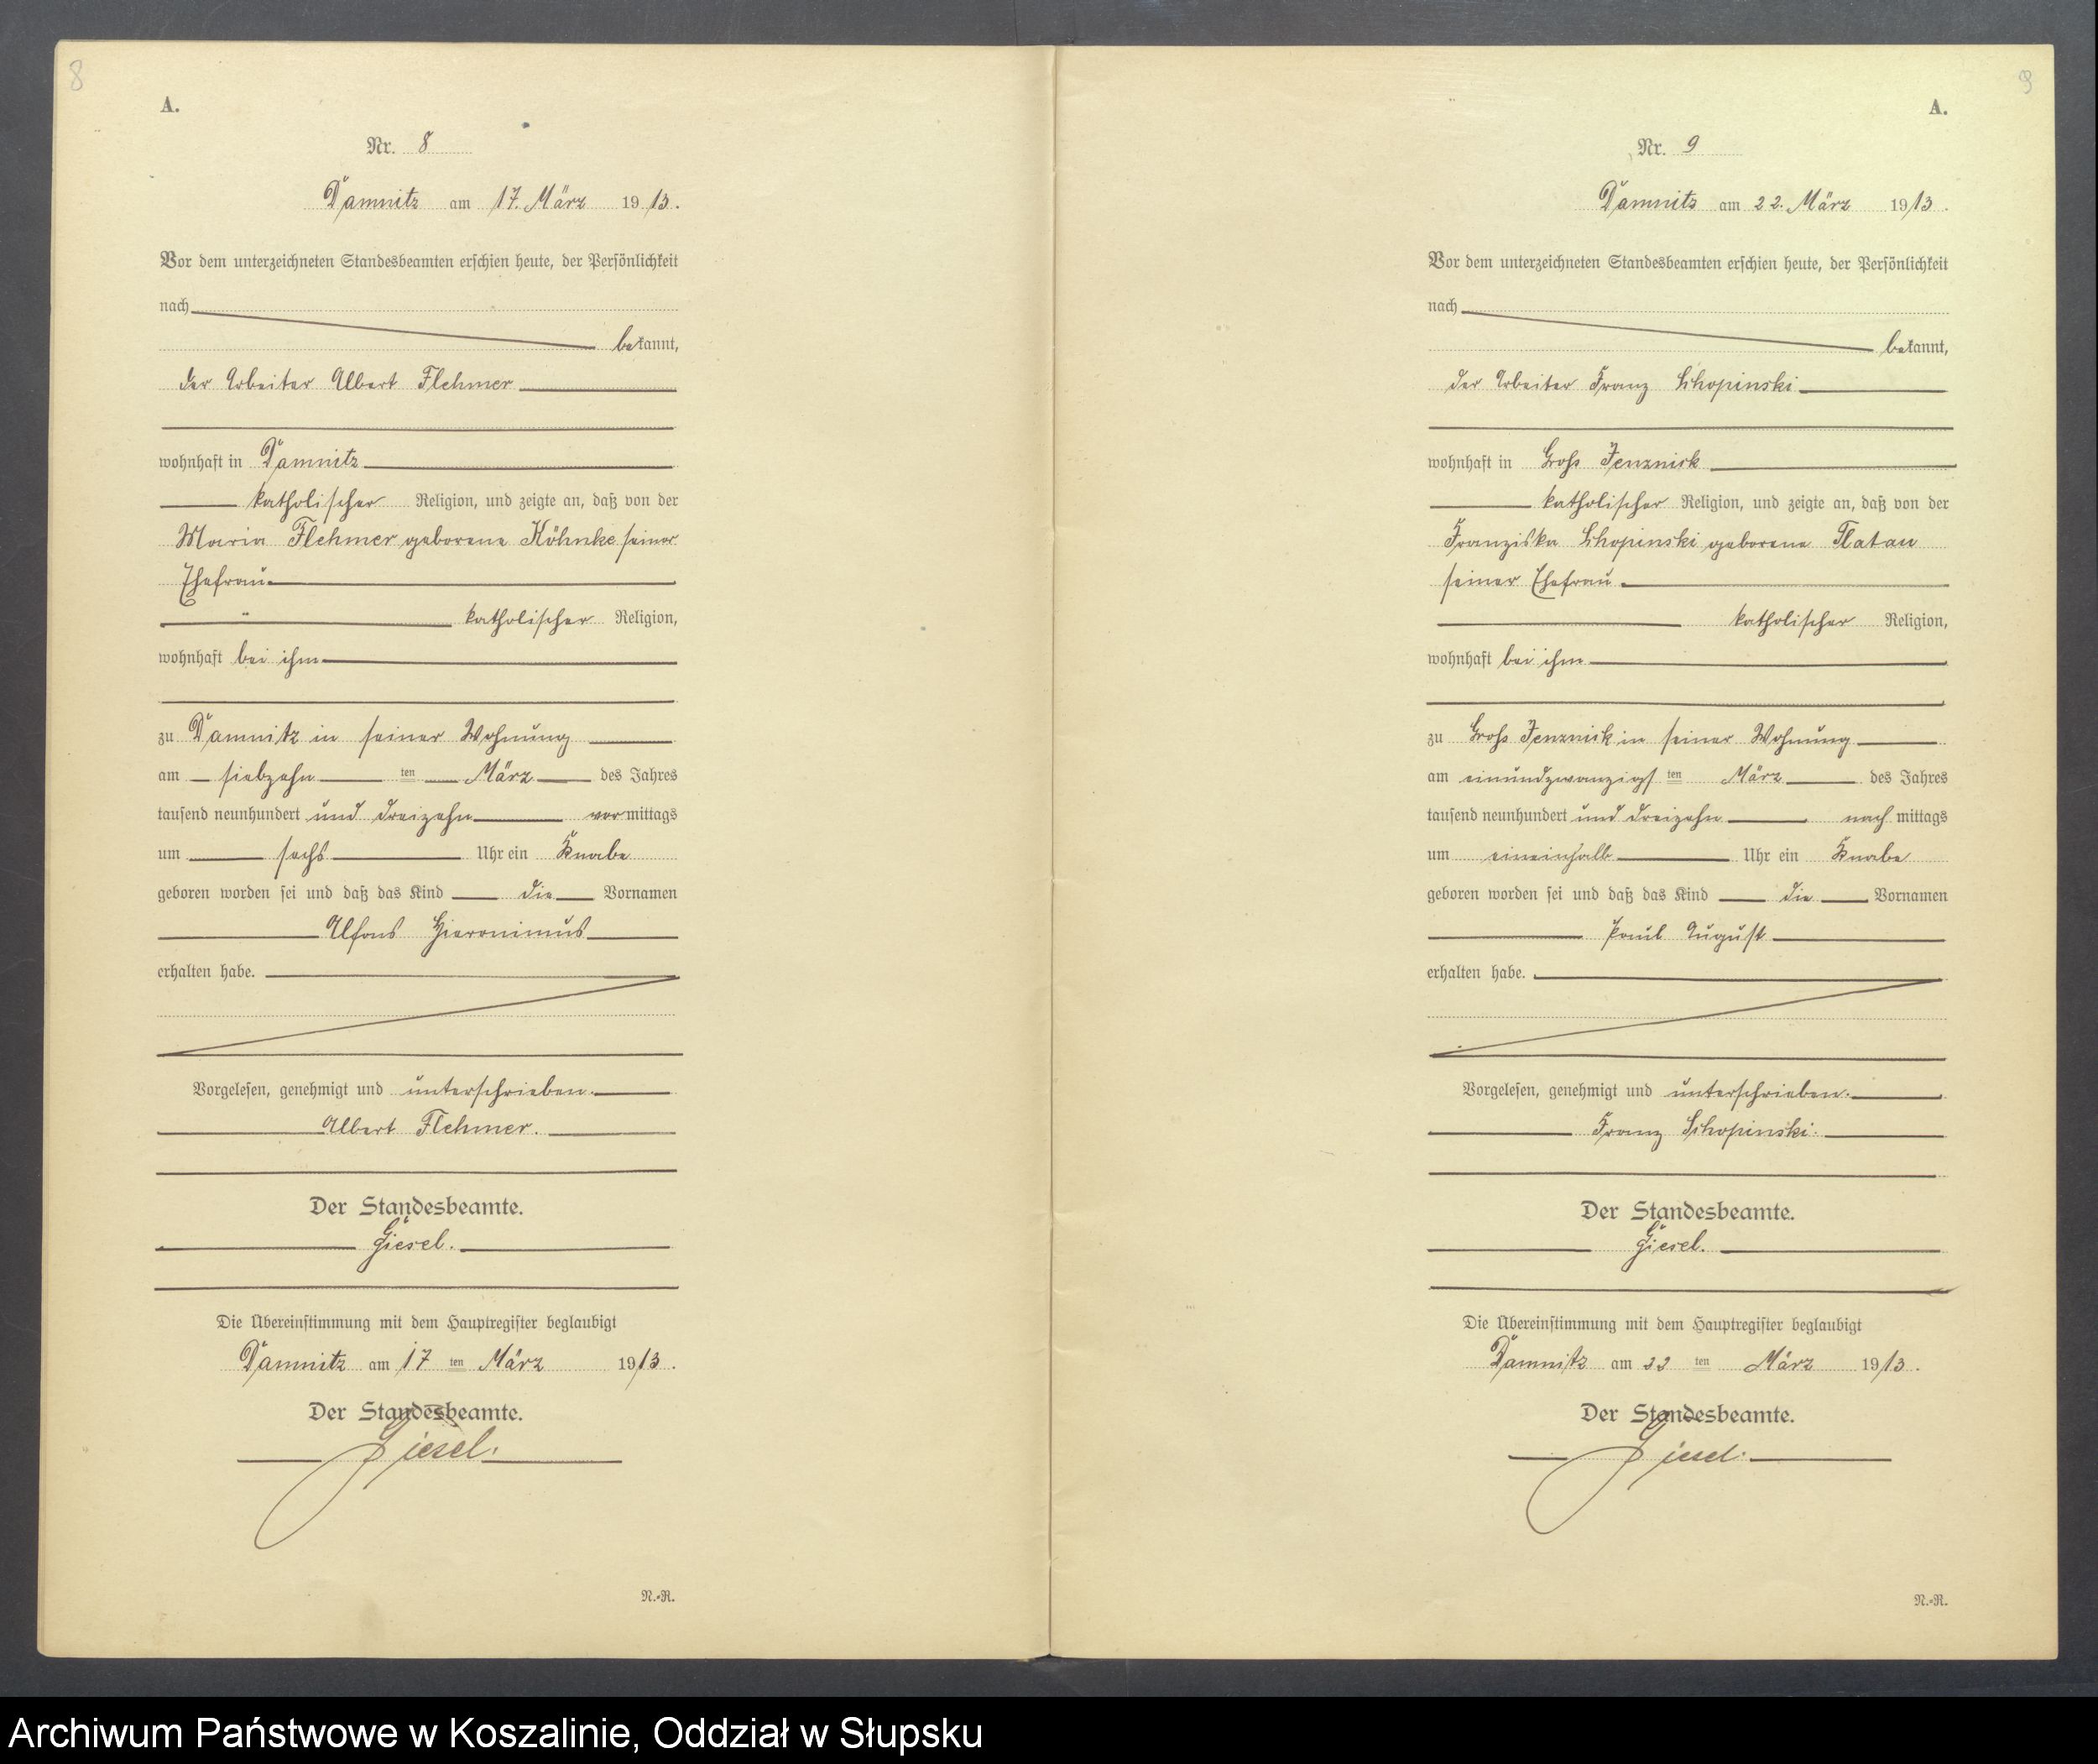 8
A.
Nr. 8
Damnitz am 17. März 1913.
Vor dem unterzeichneten Standesbeamten erschien heute, der Persönlichkeit
nach
bekannt,
der Arbeiter Albert Flehmer
wohnhaft in Damnitz
katholischer Religion, und zeigte an, daß von der
Maria Flehmer geborene Köhnke seiner
Ehefrau
katholischer Religion,
wohnhaft bei ihm
zu Damnitz in seiner Wohnung
am siebzehn ten März des Jahres
tausend neunhundert und dreizehn vormittags
um sechs Uhr ein Knabe
geboren worden sei und daß das Kind die Vornamen
Alfons Hieronimus
erhalten habe.
Vorgelesen, genehmigt und unterschrieben.
Albert Flehmer.
Der Standesbeamte.
Giesel.
Die Übereinstimmung mit dem Hauptregister beglaubigt
Damnitz am 17 ten März 1913.
Der Standesbeamte.
Giesel.
N.-R.
9
A.
Nr. 9
Damnitz am 22. März 1913.
Vor dem unterzeichneten Standesbeamten erschien heute, der Persönlichkeit
nach
bekannt,
der Arbeiter Franz Schopinski
wohnhaft in Gross Jenznick
katholischer Religion, und zeigte an, daß von der
Franziska Schopinski geborene Flatau
seiner Ehefrau
katholischer Religion,
wohnhaft bei ihm
zu Gross Jenznick in seiner Wohnung
am einundzwanzigs ten März des Jahres
tausend neunhundert und dreizehn nach mittags
um eineinhalb Uhr ein Knabe
geboren worden sei und daß das Kind die Vornamen
Paul August
erhalten habe.
Vorgelesen, genehmigt und unterschrieben.
Franz Schopinski.
Der Standesbeamte.
Giesel.
Die Übereinstimmung mit dem Hauptregister beglaubigt
Damnitz am 22 ten März 1913.
Der Standesbeamte.
Giesel.
N.-R.
Archiwum Państwowe w Koszalinie, Oddział w Słupsku